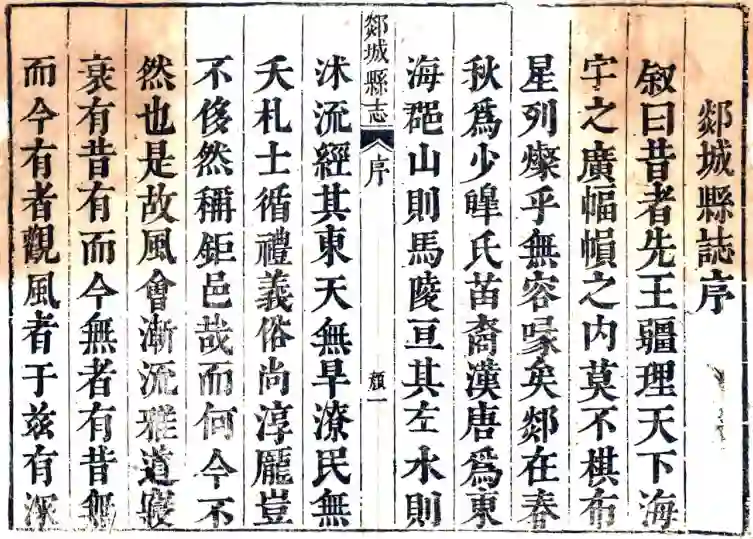 郯城縣誌序
叙曰昔者先王疆理天下海
宇之廣幅幀之內莫不棋布
星列燦乎無容喙矣郯在春
秋為少皡氏苗裔漢唐為東
海郡山則馬陵亘其左水則
郯城縣志 序 顏一
沭流經其東天無旱潦民無
夭札士循禮義俗尚淳龎豈
不侈然稱鉅邑哉而何今不
然也是故風會漸流雅道寖
衰有昔有而今無者有昔無
而今有者觀風者于兹有深